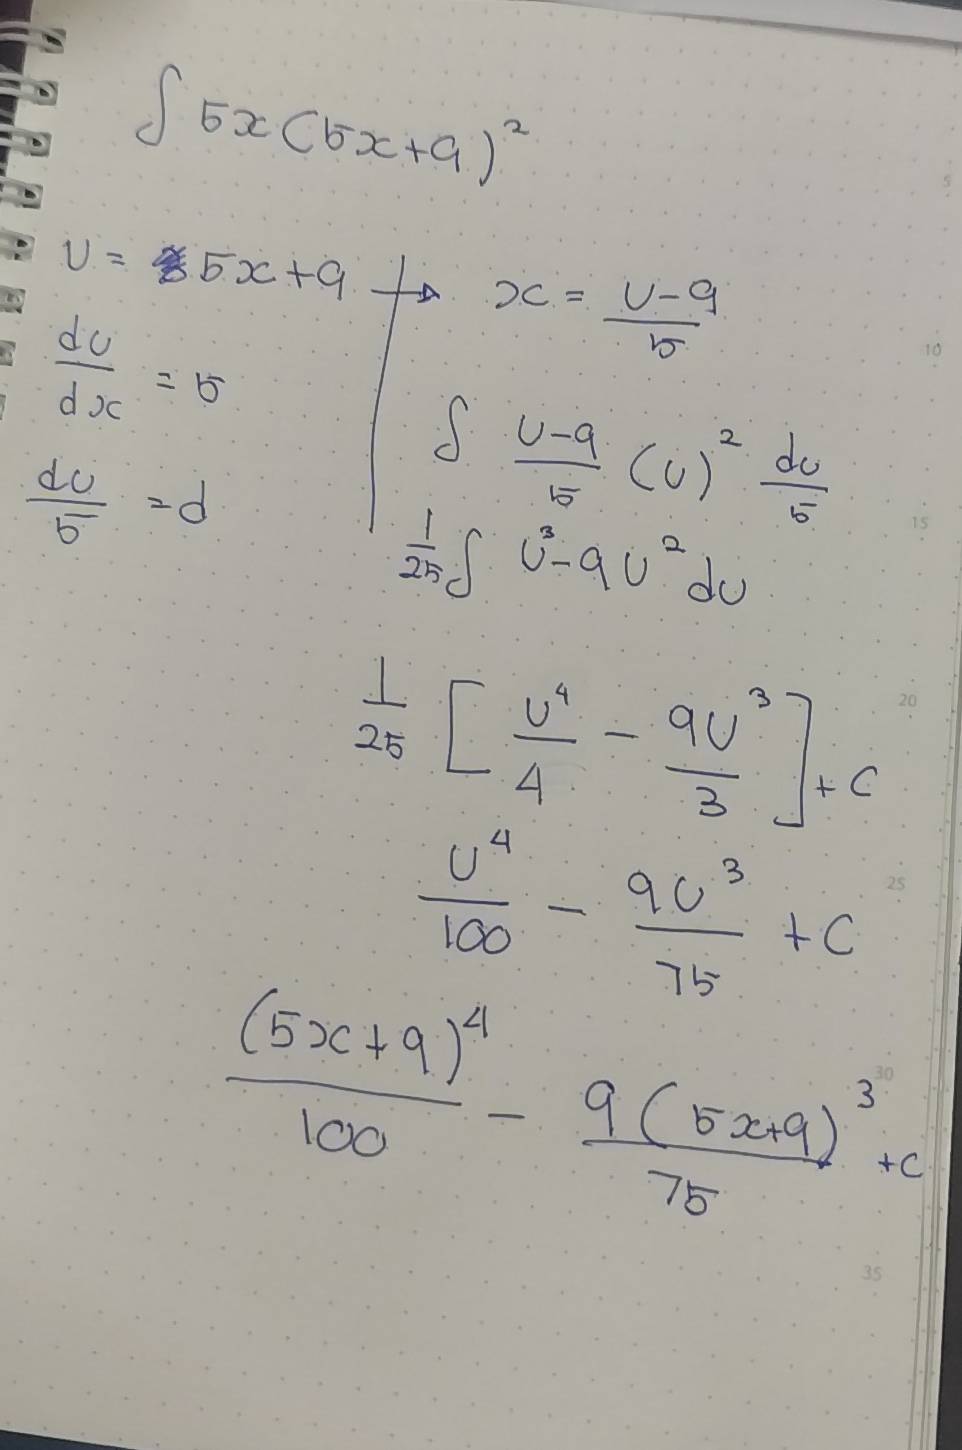 ∫ 5x(5x+9)²
U = 5x+9 → x = (U-9)/5
du/dx = 5
∫ (U-9)/5 (U)² du/5
du/5 = d
1/25 ∫ U³-9U² du
1/25 [U⁴/4 - 9U³/3] + C
U⁴/100 - 9U³/75 + C
(5x+9)⁴/100 - 9(5x+9)³/75 + C
5
10
15
20
25
30
35